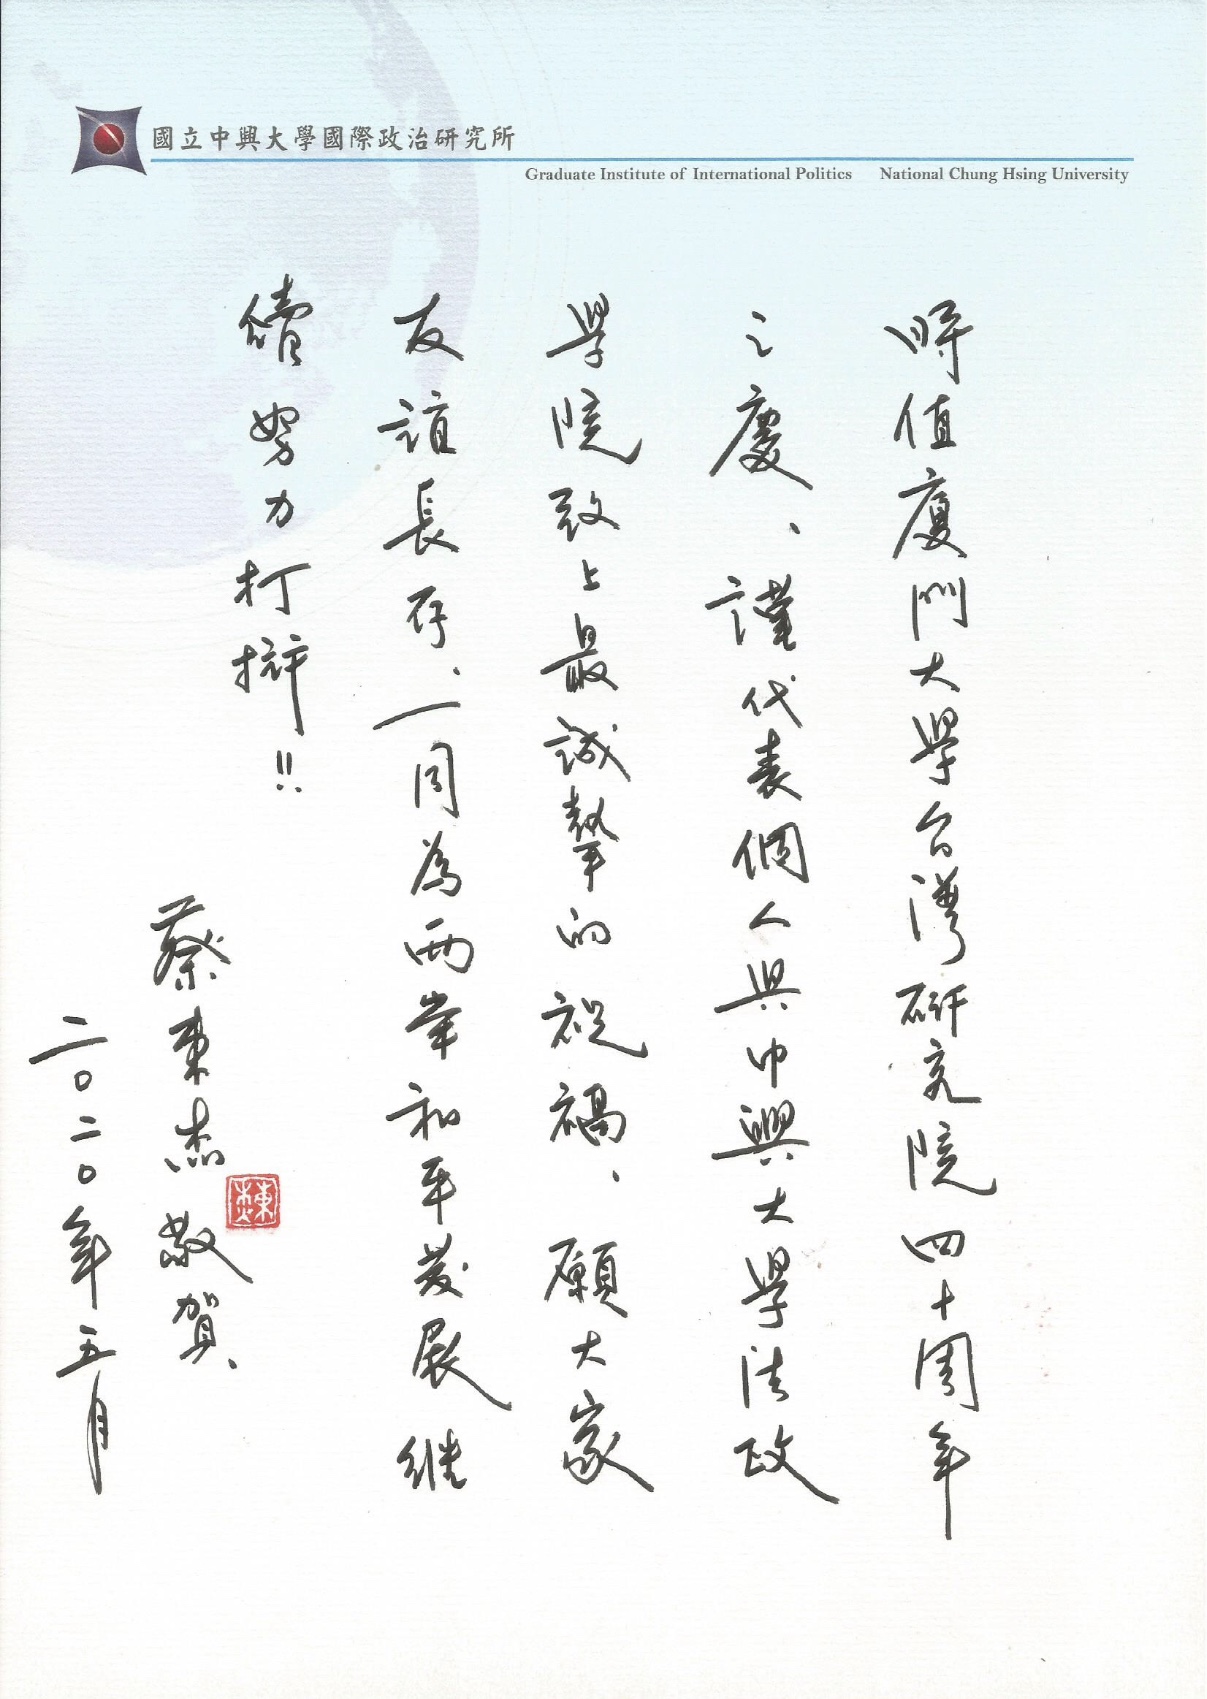 國立中興大學國際政治研究所
Graduate Institute of International Politics National Chung Hsing University
時值廈門大學台灣研究院四十周年
之慶、謹代表個人與中興大學法政
學院致上最誠摯的祝福、願大家
友誼長存、一同為兩岸和平發展継
續努力打拚!!
蔡東杰敬賀、
二〇二〇年五月